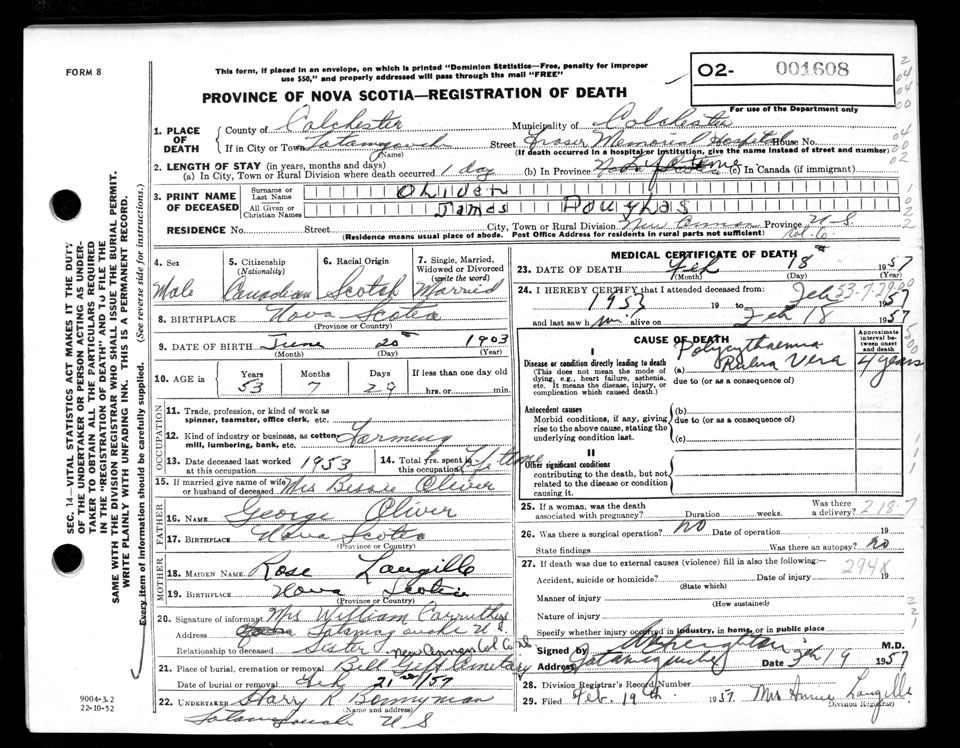 FORM 8
This form, if placed in an envelope, on which is printed "Dominion Statistics—Free, penalty for improper
use $50," and properly addressed will pass through the mail "FREE"
O2- 001608
For use of the Department only
PROVINCE OF NOVA SCOTIA—REGISTRATION OF DEATH
1. PLACE OF DEATH
County of Colchester Municipality of Colchester
If in City or Town Tatamagouche (Name) Street Fraser Memorial Hospital House No.
(If death occurred in a hospital or institution, give the name instead of street and number)
2. LENGTH OF STAY (in years, months and days)
(a) In City, Town or Rural Division where death occurred 1 day (b) In Province Lifetime (c) In Canada (if immigrant)
3. PRINT NAME OF DECEASED
Surname or Last Name Oliver
All Given or Christian Names James Doughlas
RESIDENCE No. Street City, Town or Rural Division New Annan Province N S
Col. Co.
(Residence means usual place of abode. Post Office Address for residents in rural parts not sufficient)
4. Sex Male
5. Citizenship (Nationality) Canadian
6. Racial Origin Scotch
7. Single, Married, Widowed or Divorced (write the word) Married
8. BIRTHPLACE Nova Scotia
(Province or Country)
9. DATE OF BIRTH June 20 1903
(Month) (Day) (Year)
10. AGE in Years 53 Months 7 Days 29 If less than one day old hrs. or min.
OCCUPATION
11. Trade, profession, or kind of work as spinner, teamster, office clerk, etc.
12. Kind of industry or business, as cotton mill, lumbering, bank, etc. Farming
13. Date deceased last worked at this occupation 1953
14. Total yrs. spent in this occupation Lifetime
15. If married give name of wife or husband of deceased Mrs Bessie Oliver
FATHER
16. NAME George Oliver
17. BIRTHPLACE Nova Scotia
(Province or Country)
MOTHER
18. MAIDEN NAME Rose Langille
19. BIRTHPLACE Nova Scotia
(Province or Country)
20. Signature of informant Mrs William Carruthers
Address Tatamagouche N S
Relationship to deceased Sister New Annan Col Co
21. Place of burial, cremation or removal Bell Gift Cemetary
Date of burial or removal Feb 21 st/57
22. UNDERTAKER Harry R Bonnyman
(Name and address)
Tatamagouche N S
9004-3.2
22-10-52
SEC. 14—VITAL STATISTICS ACT MAKES IT THE DUTY
OF THE UNDERTAKER OR PERSON ACTING AS UNDER-
TAKER TO OBTAIN ALL THE PARTICULARS REQUIRED
IN THE "REGISTRATION OF DEATH" AND TO FILE THE
SAME WITH THE DIVISION REGISTRAR WHO SHALL ISSUE THE BURIAL PERMIT.
WRITE PLAINLY WITH UNFADING INK. THIS IS A PERMANENT RECORD.
Every item of information should be carefully supplied. (See reverse side for instructions.)
MEDICAL CERTIFICATE OF DEATH
23. DATE OF DEATH Feb 18 1957
(Month) (Day) (Year)
24. I HEREBY CERTIFY that I attended deceased from:
1953 19 to Feb 1957
and last saw him alive on Feb 18 1957
CAUSE OF DEATH
Approximate interval between onset and death
I
Disease or condition directly leading to death
(This does not mean the mode of dying, e.g., heart failure, asthenia, etc. It means the disease, injury, or complication which caused death.)
(a) Polycythaemia Rubra Vera 4 years
due to (or as a consequence of)
Antecedent causes
Morbid conditions, if any, giving rise to the above cause, stating the underlying condition last.
(b)
due to (or as a consequence of)
(c)
II
Other significant conditions
contributing to the death, but not related to the disease or condition causing it.
25. If a woman, was the death associated with pregnancy? Duration weeks. Was there a delivery? 218-7
26. Was there a surgical operation? no Date of operation 19
State findings Was there an autopsy? no
27. If death was due to external causes (violence) fill in also the following:—
294X
Accident, suicide or homicide? Date of injury 19
(State which)
Manner of injury
(How sustained)
Nature of injury
Specify whether injury occurred in industry, in home, or in public place
Signed by M.D.
Address Tatamagouche Date Feb 19 1957
28. Division Registrar's Record Number
29. Filed Feb. 19th. 1957. Mrs Annie Langille
Division Registrar)